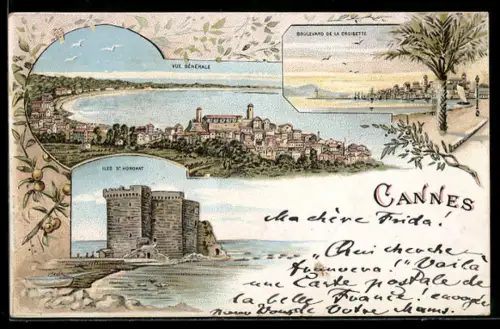 BOULEVARD DE LA CROISETTE
VUE GÉNÉRALE
ILES ST HONORAT
CANNES
Ma chère Frida!
"Qui cherche
trouvera!" Voilà
une Carte postale de
la belle France! envoyée
pour Vous Votre